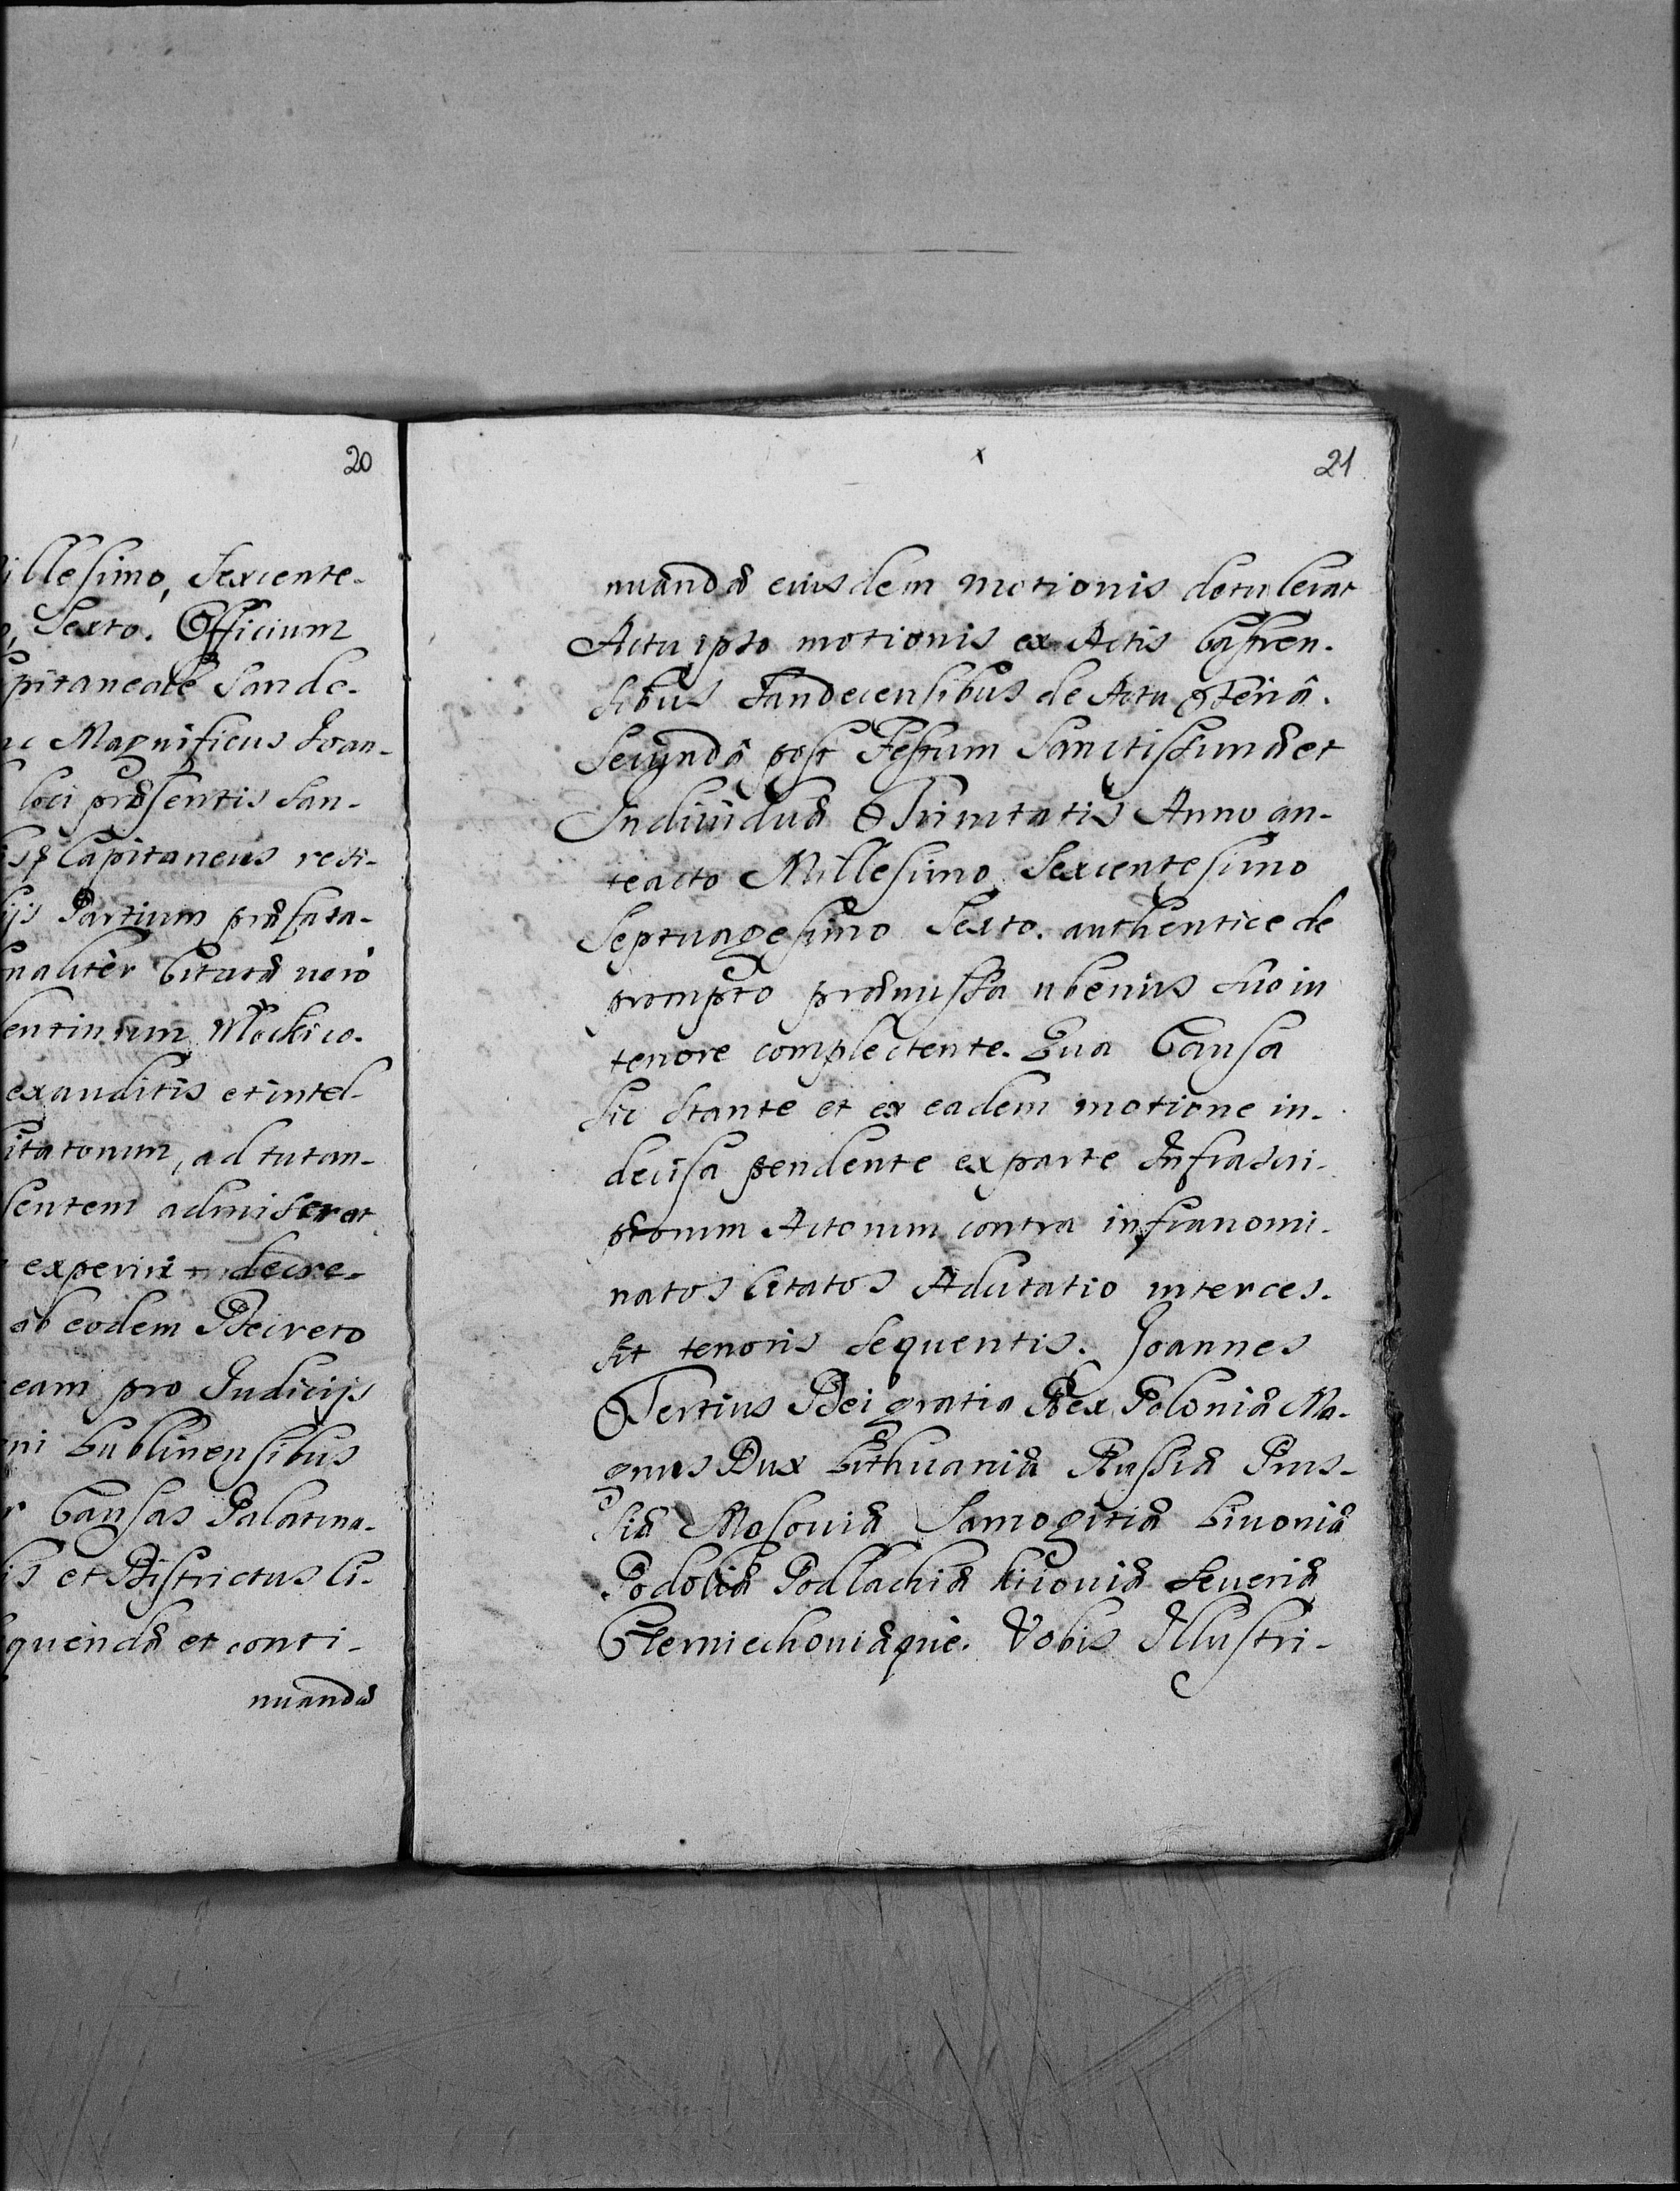 20
illesimo, Sexcente-
Sexto. Officium
pitaneale Sande-
Magnificus Joan-
loci præsentis San-
Capitaneus resi-
Partium præfata-
naliter Citatæ verò
exauditis et intel-
itatorum, ad tutan-
sentem admiserat
experiri decre-
ab eodem Decreto
eam pro Judicijs
ni Lublinensibus
Causas Palatina-
is et Districtus Ci-
quendæ et conti-
nuandæ
21
nuandæ eiusdem motionis detulerat
Actu ipso motionis ex Actis Castren-
sibus Sandecensibus de Actu Feriâ
Secundâ post Festum Sanctissimæ et
Individuæ Trinitatis Anno an-
teacto Millesimo Sexcentesimo
Septuagesimo Sexto. authentice de
prompto præmissa uberius suo in
tenore complectente. Qua Causa
sic stante et ex eadem motione in-
decisa pendente ex parte Infrascri-
ptorum Actorum contra infranomi-
natos Citatos Adcitatio interces-
sit tenoris sequentis. Joannes
Tertius Dei gratia Rex Poloniæ Ma-
gnus Dux Lithuaniæ Russiæ Prus-
siæ Masoviæ Samogitiæ Livoniæ
Podoliæ Podlachiæ Kiioviæ Severiæ
Czerniechoviæque. Vobis Illustri-